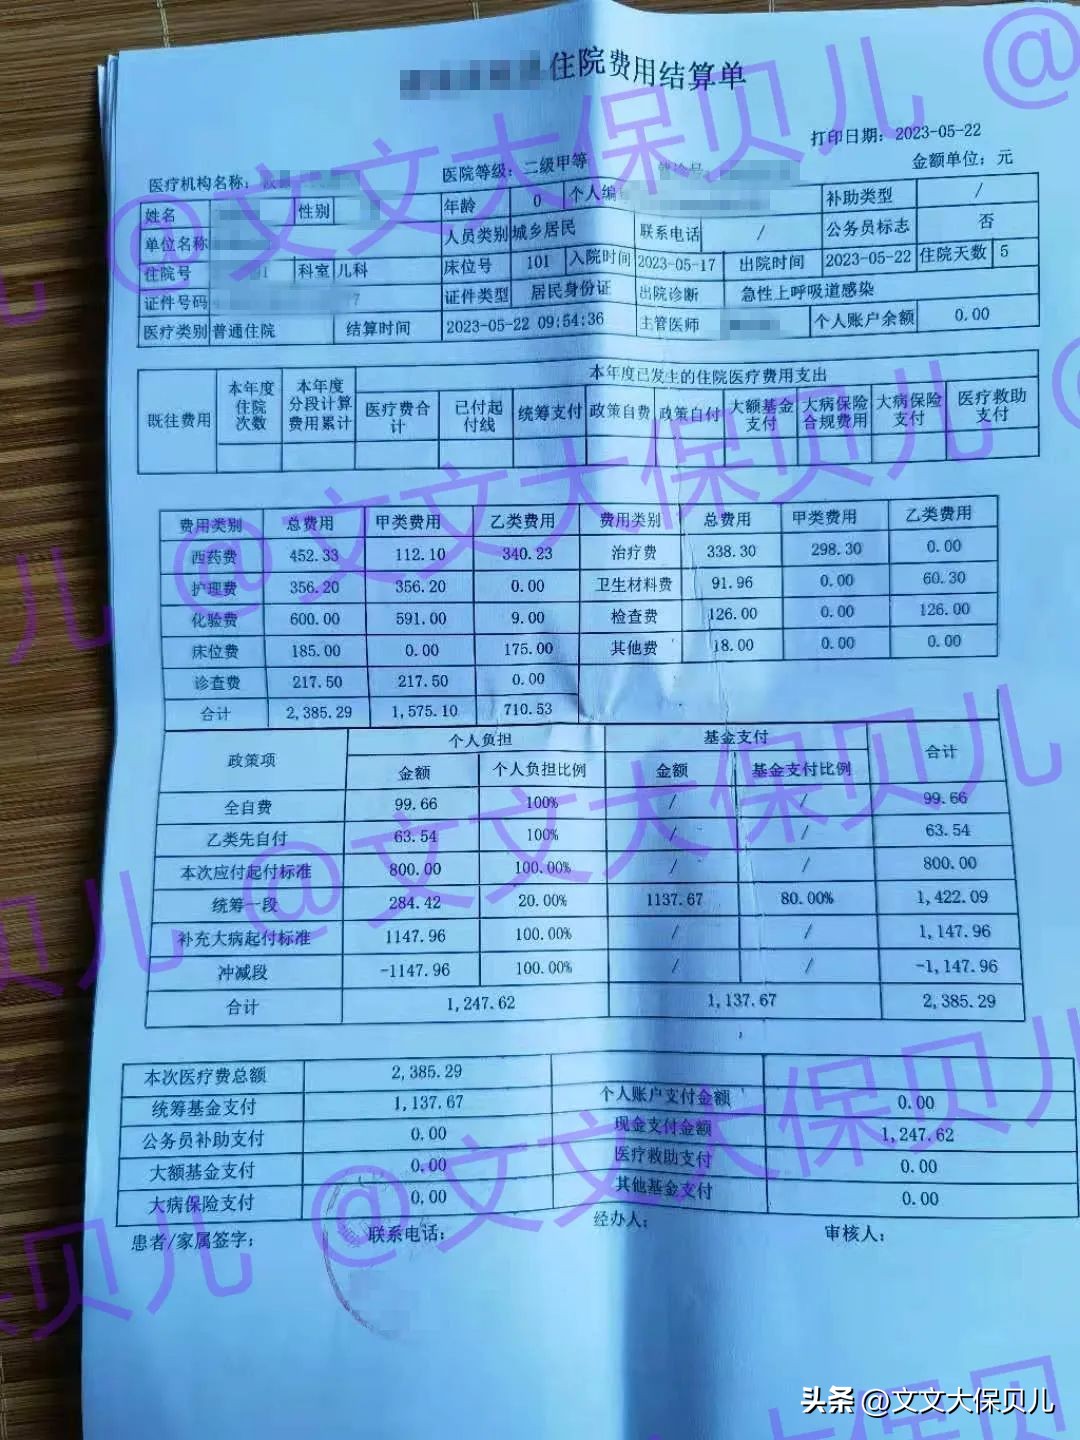 住院费用结算单
打印日期：2023-05-22
医疗机构名称： 医院等级：二级甲等 金额单位：元
姓名 性别 年龄 0 个人编 补助类型 /
单位名称 人员类别 城乡居民 联系电话 / 公务员标志 否
住院号 科室 儿科 床位号 101 入院时间 2023-05-17 出院时间 2023-05-22 住院天数 5
证件号码 证件类型 居民身份证 出院诊断 急性上呼吸道感染
医疗类别 普通住院 结算时间 2023-05-22 09:54:36 主管医师 个人账户余额 0.00
既往费用 本年度住院次数 本年度分段计算费用累计 本年度已发生的住院医疗费用支出
医疗费合计 已付起付线 统筹支付 政策自费 政策自付 大额基金支付 大病保险合规费用 大病保险支付 医疗救助支付
费用类别 总费用 甲类费用 乙类费用 费用类别 总费用 甲类费用 乙类费用
西药费 452.33 112.10 340.23 治疗费 338.30 298.30 0.00
护理费 356.20 356.20 0.00 卫生材料费 91.96 0.00 60.30
化验费 600.00 591.00 9.00 检查费 126.00 0.00 126.00
床位费 185.00 0.00 175.00 其他费 18.00 0.00 0.00
诊查费 217.50 217.50 0.00
合计 2,385.29 1,575.10 710.53
政策项 个人负担 基金支付 合计
金额 个人负担比例 金额 基金支付比例
全自费 99.66 100% / / 99.66
乙类先自付 63.54 100% / / 63.54
本次应付起付标准 800.00 100.00% / / 800.00
统筹一段 284.42 20.00% 1137.67 80.00% 1,422.09
补充大病起付标准 1147.96 100.00% / / 1,147.96
冲减段 -1147.96 100.00% / / -1,147.96
合计 1,247.62 1,137.67 2,385.29
本次医疗费总额 2,385.29
统筹基金支付 1,137.67 个人账户支付金额 0.00
公务员补助支付 0.00 现金支付金额 1,247.62
大额基金支付 0.00 医疗救助支付 0.00
大病保险支付 0.00 其他基金支付 0.00
患者/家属签字： 联系电话： 经办人： 审核人：
@文文大保贝儿
@文文大保贝儿
@文文大保贝儿
@文文大保贝儿
头条 @文文大保贝儿